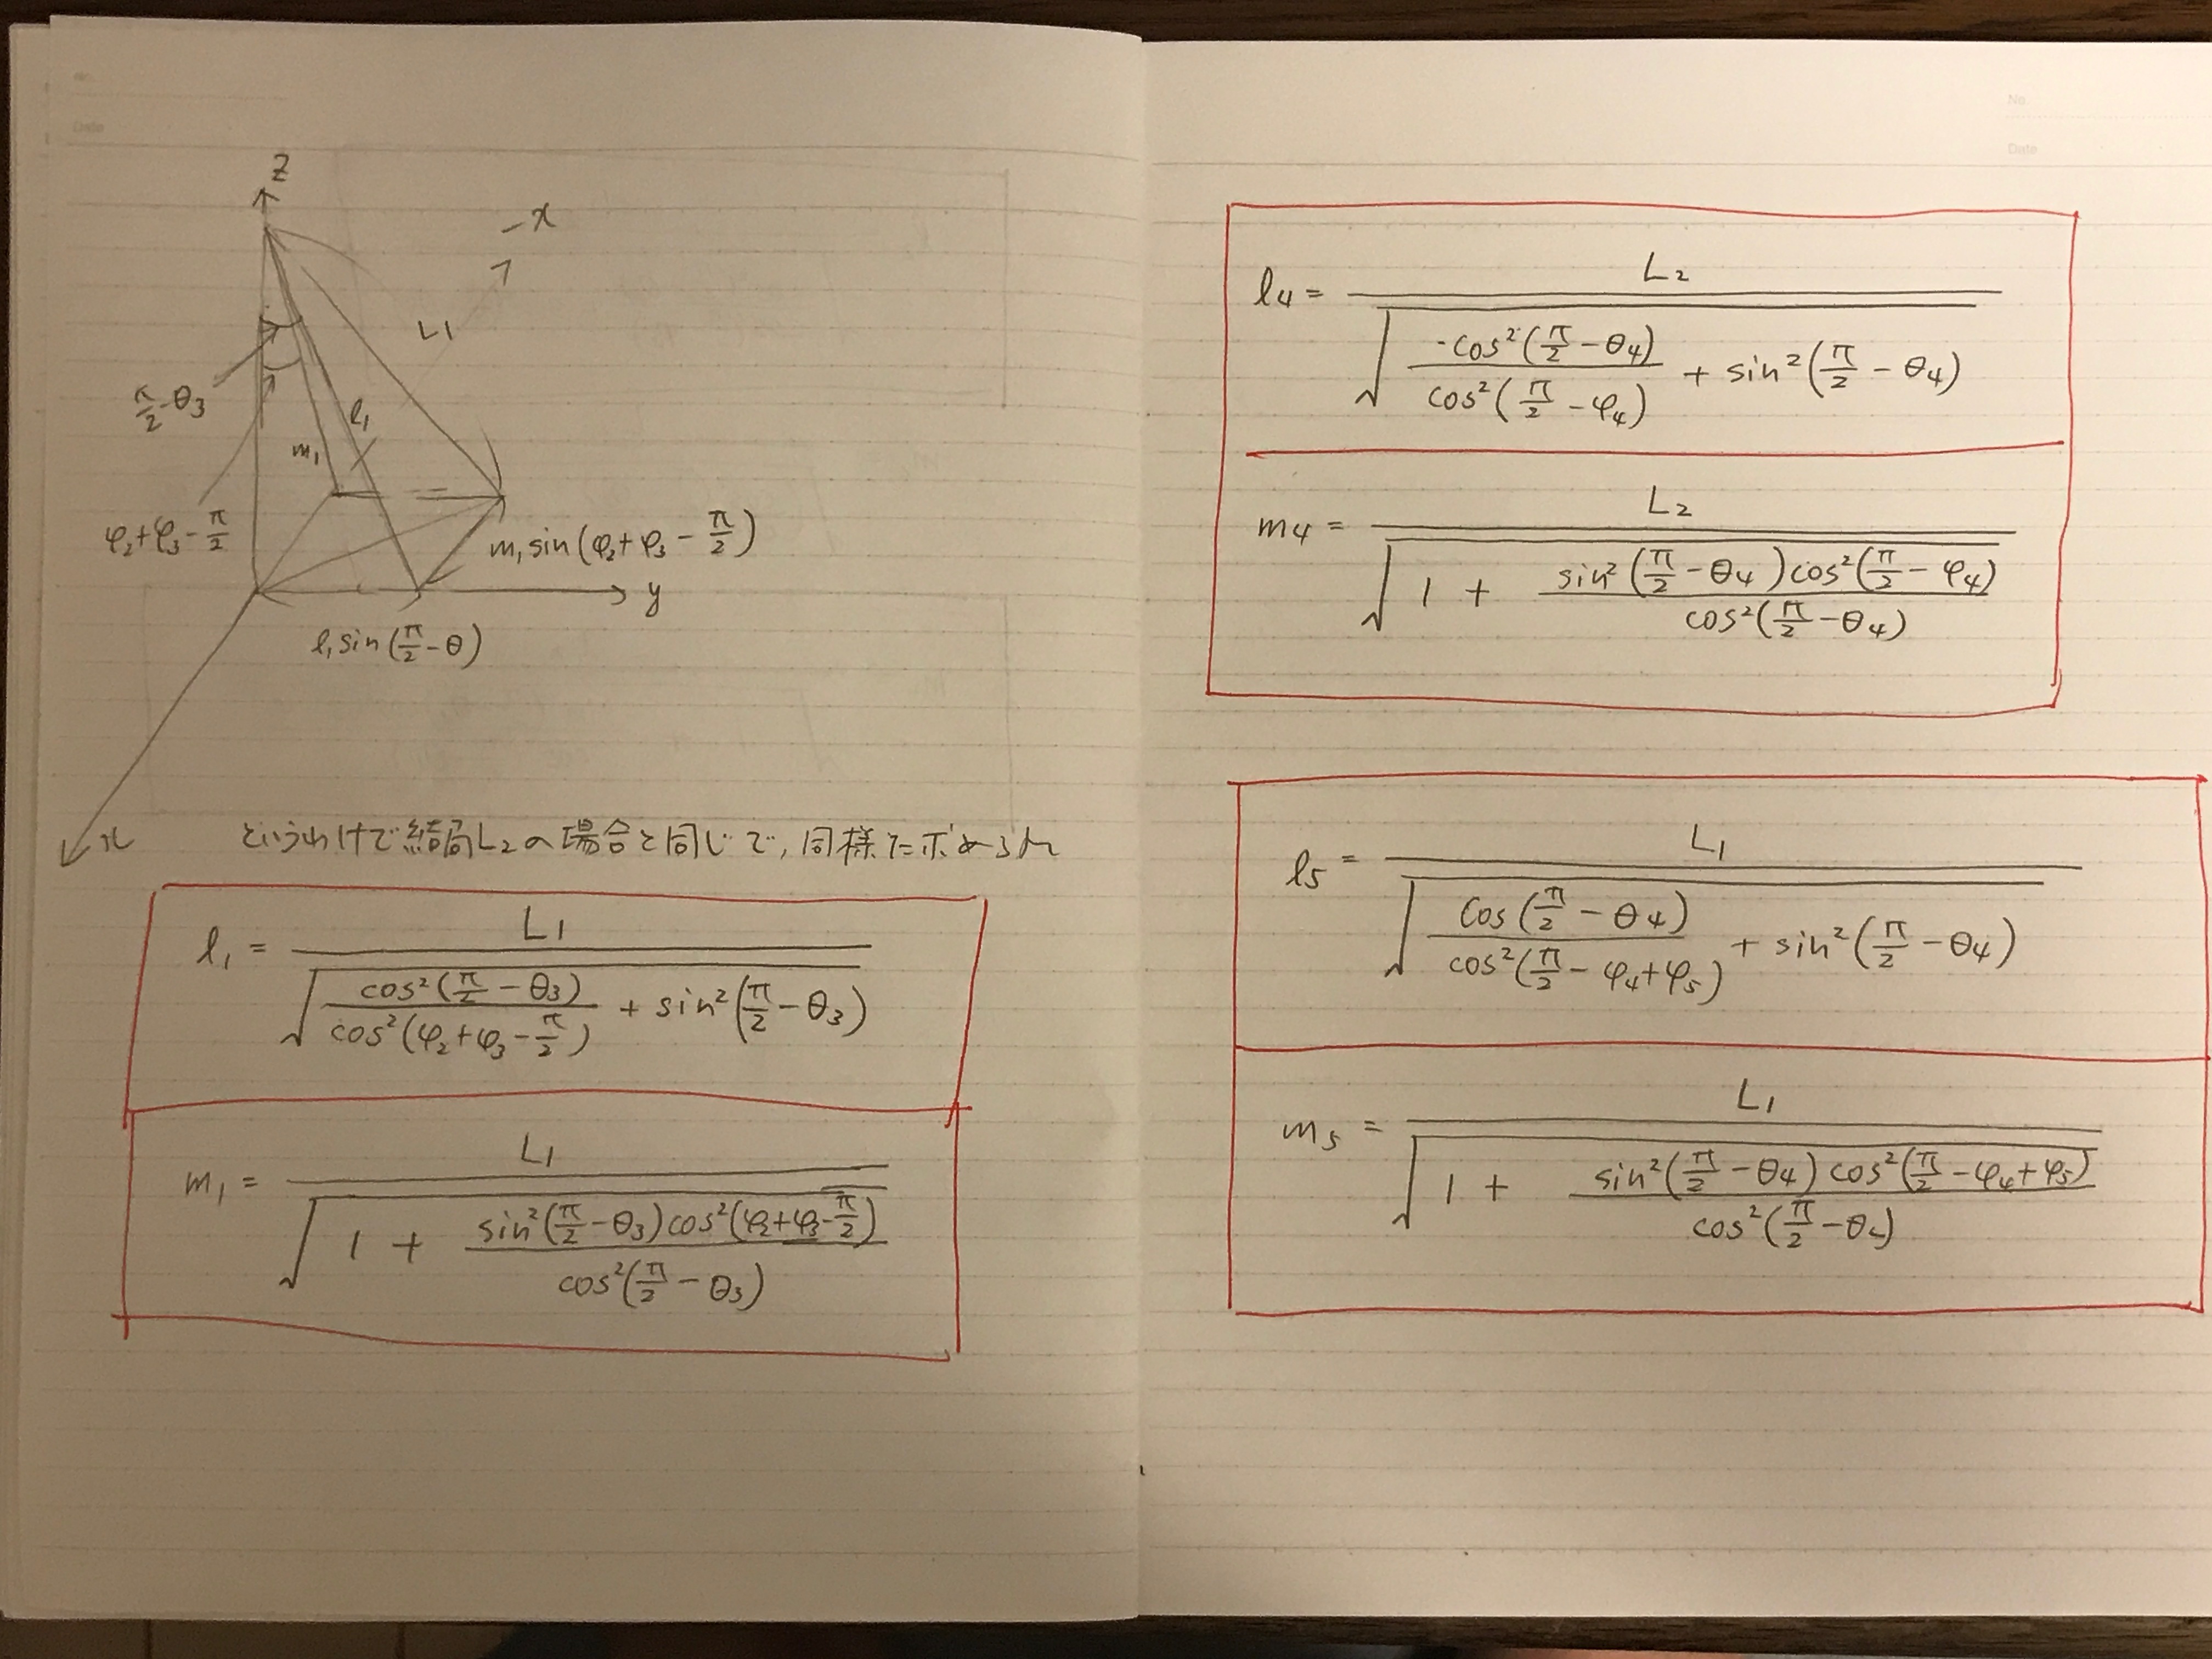 Date
z
-x
L1
π/2-θ3
l1
m1
φ2+φ3-π/2
m1 sin(φ2+φ3-π/2)
y
l1 sin(π/2-θ)
x
というわけで結局L2の場合と同じで,同様に求められ
l1 = L1 / √(cos²(π/2-θ3) / cos²(φ2+φ3-π/2) + sin²(π/2-θ3))
m1 = L1 / √(1 + sin²(π/2-θ3)cos²(φ2+φ3-π/2) / cos²(π/2-θ3))
No.
Date
l4 = L2 / √(-cos²(π/2-θ4) / cos²(π/2-φ4) + sin²(π/2-θ4))
m4 = L2 / √(1 + sin²(π/2-θ4)cos²(π/2-φ4) / cos²(π/2-θ4))
l5 = L1 / √(cos(π/2-θ4) / cos²(π/2-φ4+φ5) + sin²(π/2-θ4))
m5 = L1 / √(1 + sin²(π/2-θ4)cos²(π/2-φ4+φ5) / cos²(π/2-θ))